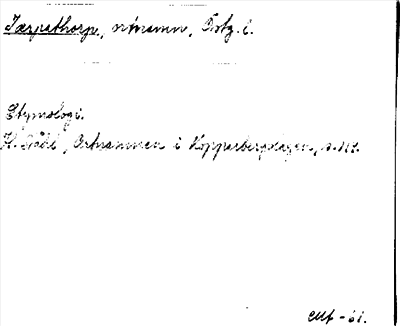 Jærpathorp, ortnamn, Östg. l.
Etymologi.
H. Ståhl, Ortnamnen i Kopparbergslagen, s.
-61.